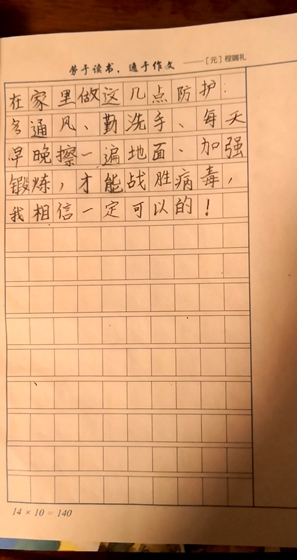 劳于读书，逸于作文 ——［元］程端礼
在家里做这几点防护：
多通风、勤洗手、每天
早晚擦一遍地面、加强
锻炼，才能战胜病毒，
我相信一定可以的！
14 × 10 = 140